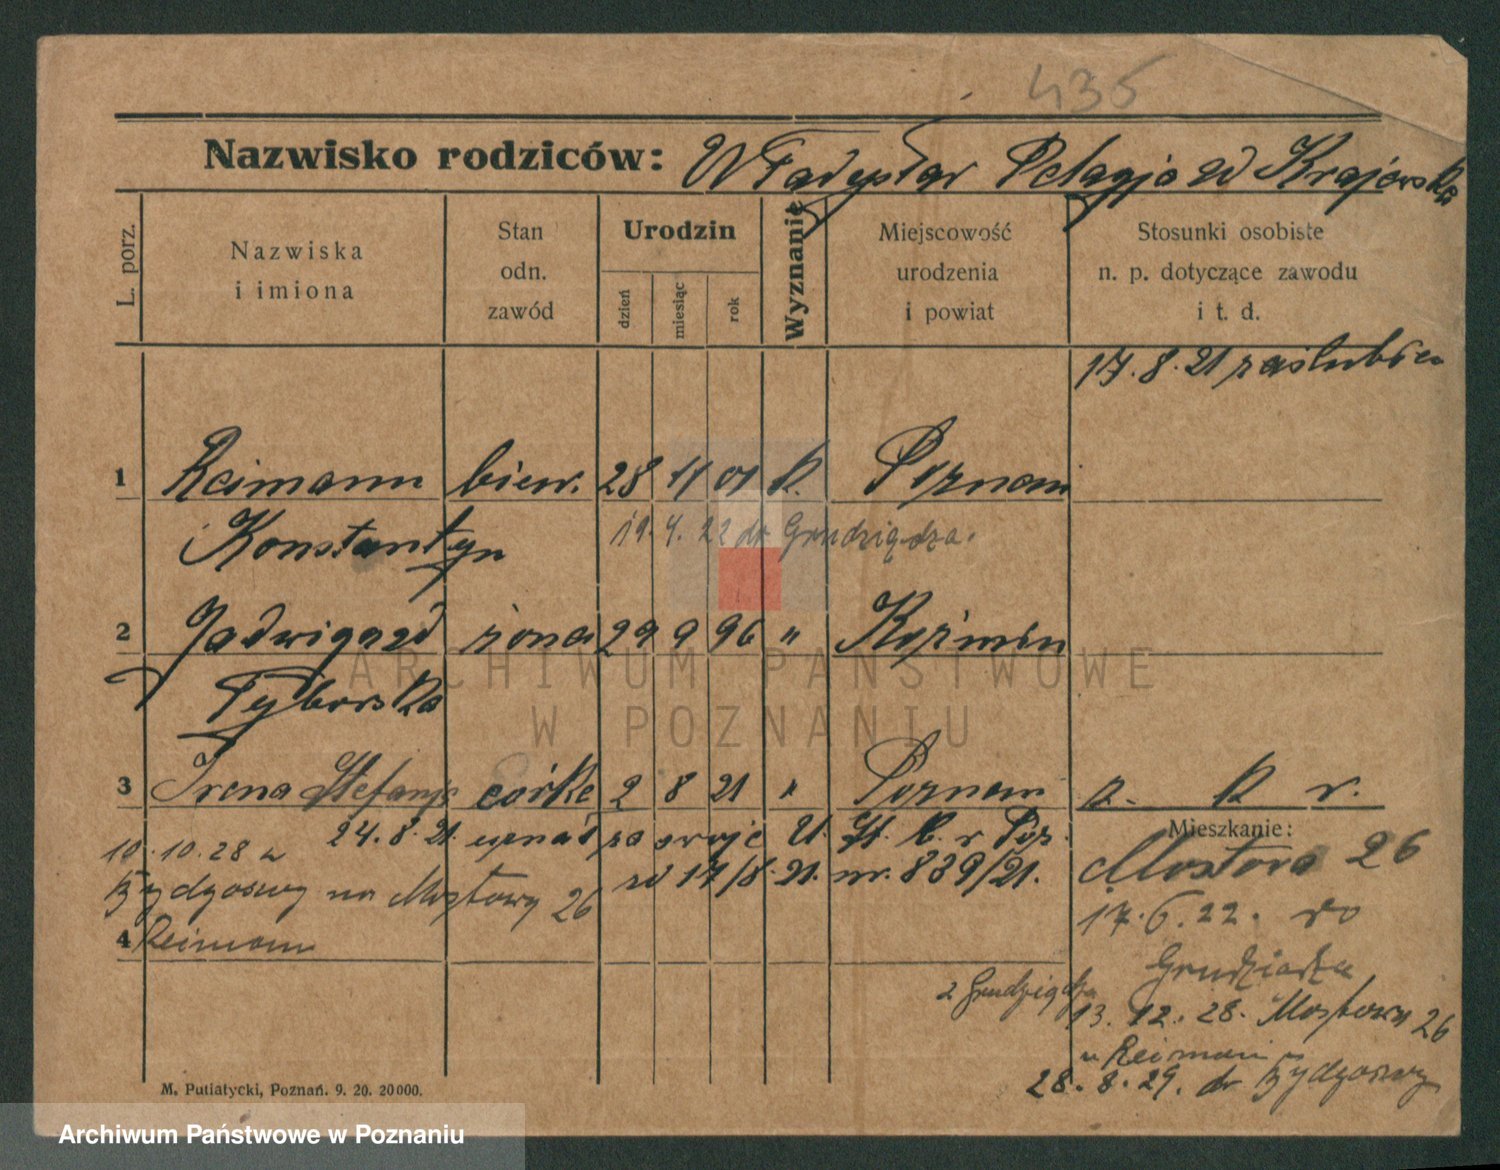 435
Nazwisko rodziców: Władysław Pelagja zd Krajewska
L. porz.
Nazwiska i imiona
Stan odn. zawód
Urodzin
dzień
miesiąc
rok
Wyznanie
Miejscowość urodzenia i powiat
Stosunki osobiste n. p. dotyczące zawodu i t. d.
17.8.21 zaślubien
1 Reimann biur. 28 11 01 k. Poznań
Konstantyn 19.4.22 do Grudziądza.
2 Jadwiga zd żona 29 9 96 " Koźmin
Tyborska
ARCHIWUM PAŃSTWOWE
W POZNANIU
3 Irena Stefanja córka 2 8 21 " Poznań
24.8.21. uznał za swoje U. St. C. w Poz.
17/8.21. nr. 839/21.
10.10.28 z
Bydgoszczy na Mostowy 26
4 Reimann
Mieszkanie:
Mostowa 26
17.6.22. do
Grudziądza
z Grudziądza
13.12.28. Mostowa 26
u Reiman
28.8.29. do Bydgoszczy
M. Putiatycki, Poznań. 9. 20. 20000.
Archiwum Państwowe w Poznaniu